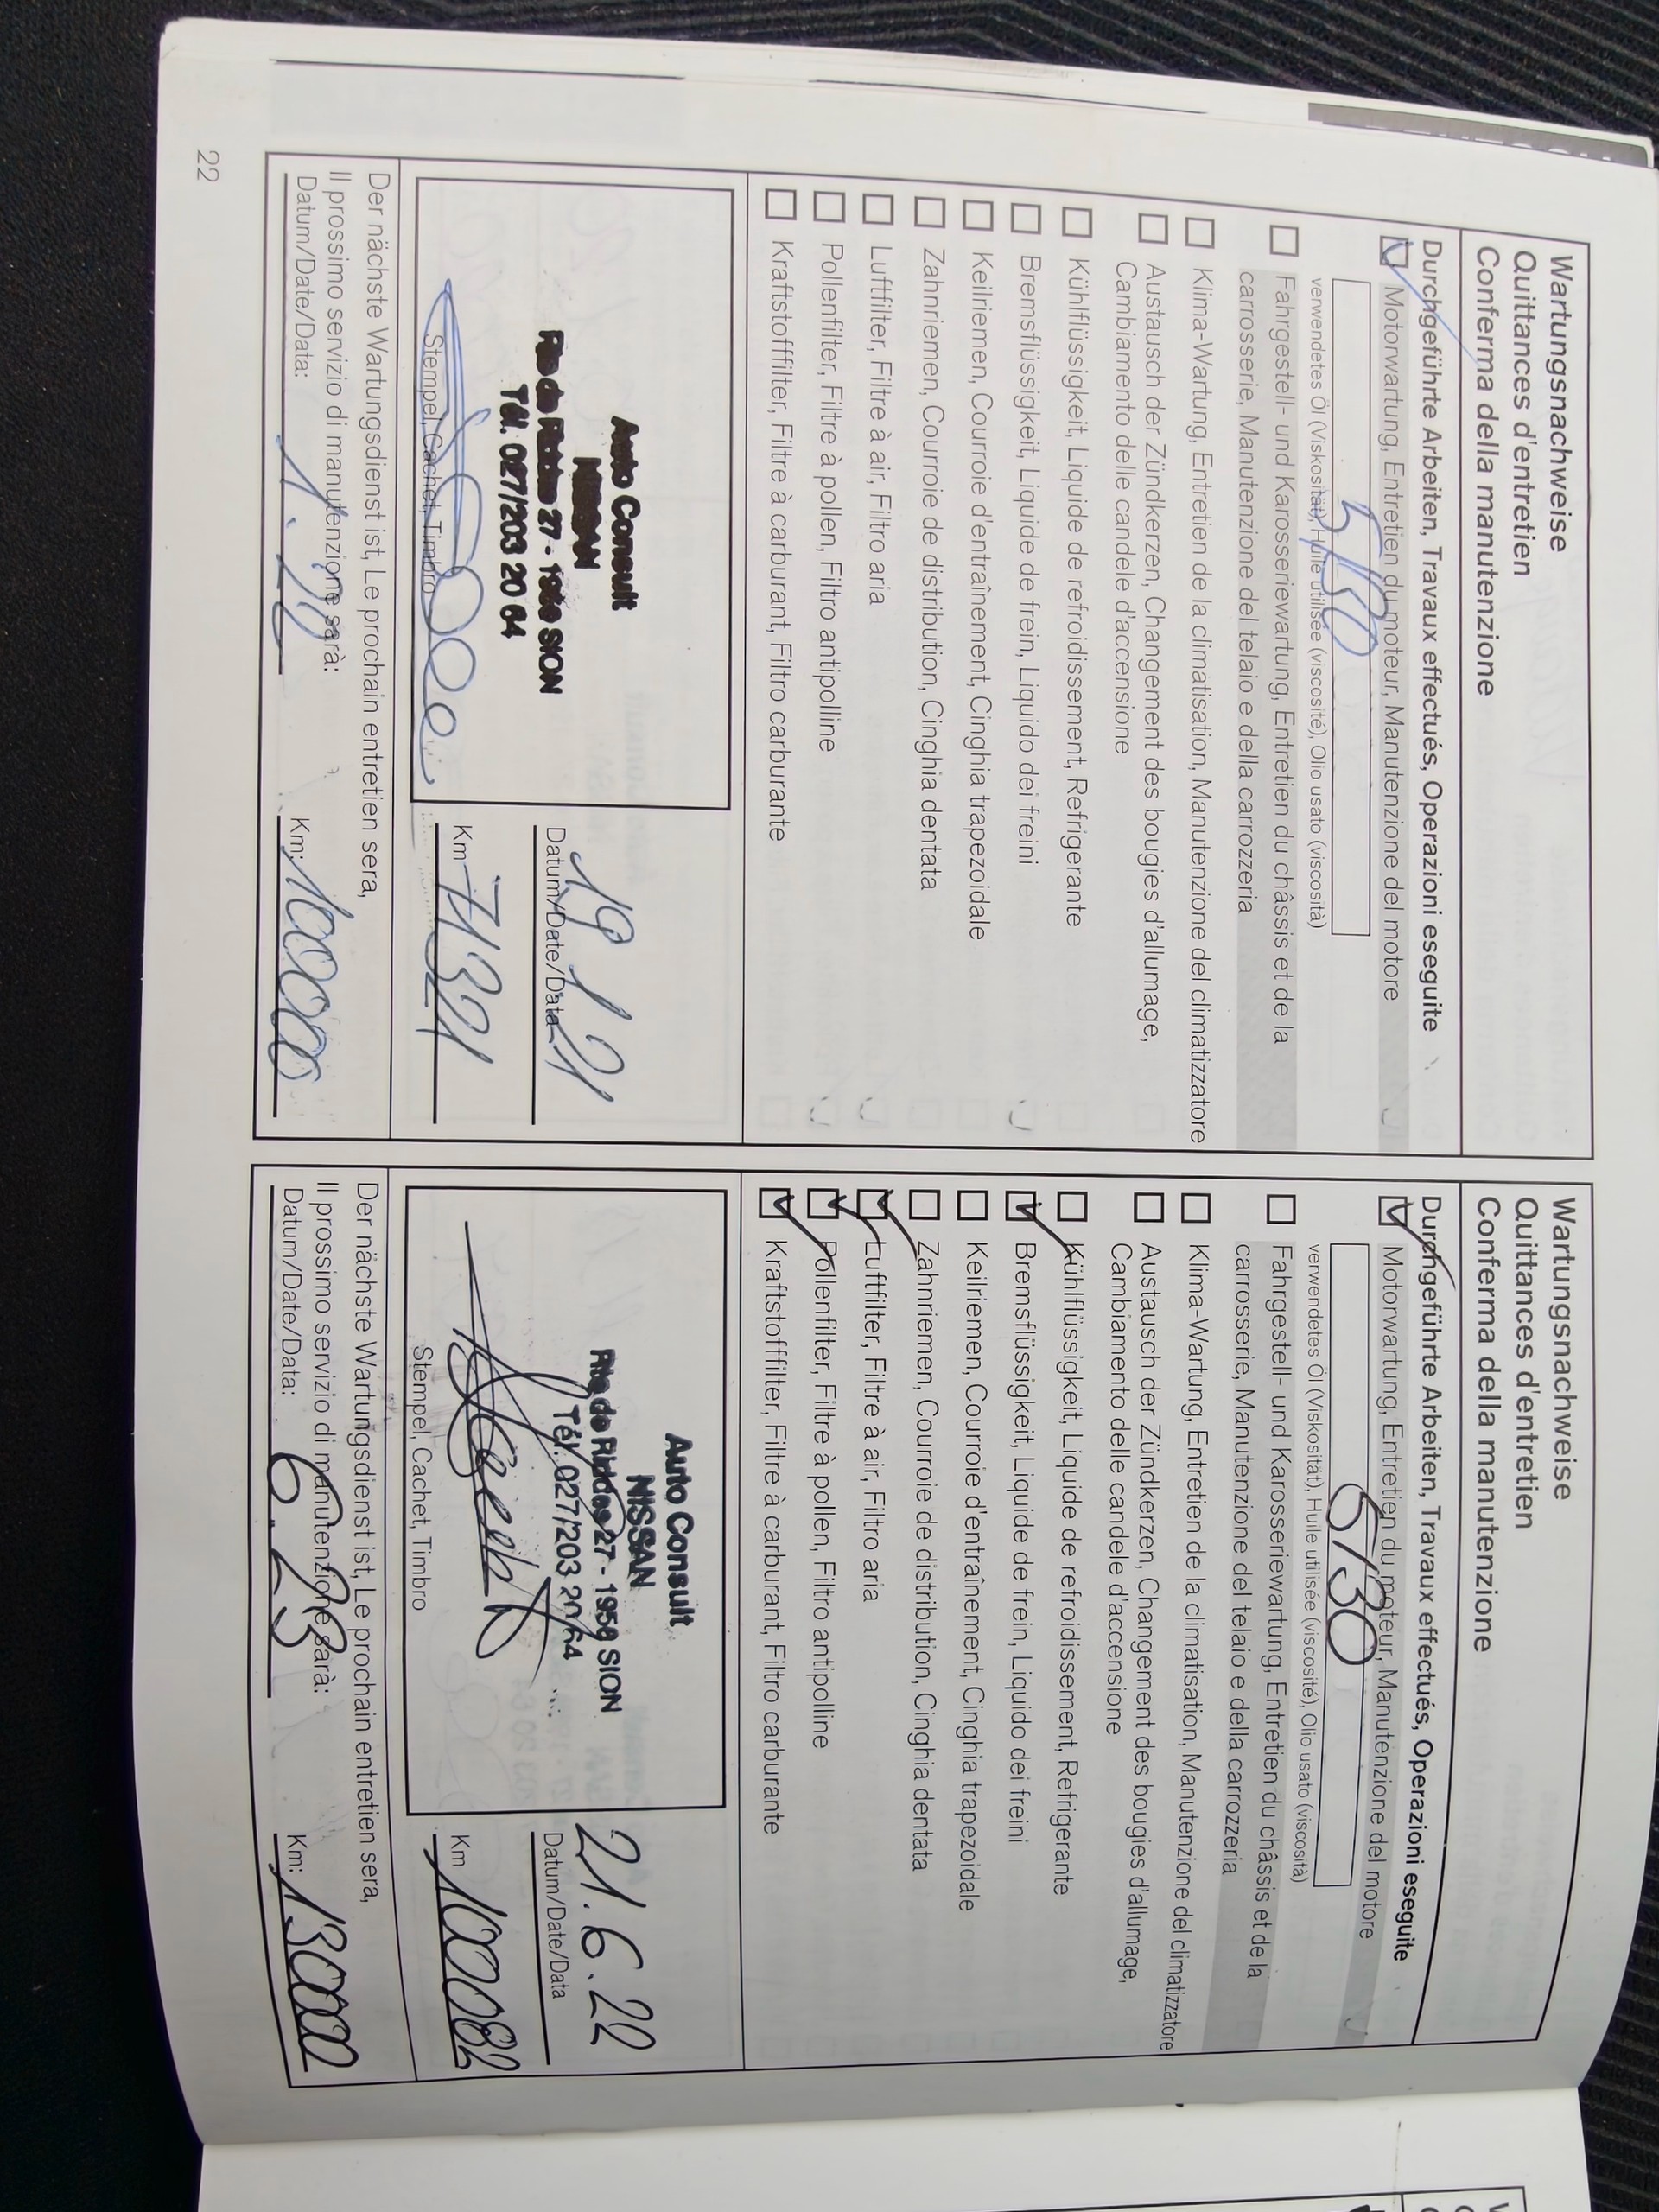 Wartungsnachweise
Quittances d'entretien
Conferma della manutenzione
Durchgeführte Arbeiten, Travaux effectués, Operazioni eseguite
Motorwartung, Entretien du moteur, Manutenzione del motore
5/30
verwendetes Öl (Viskosität), Huile utilisée (viscosité), Olio usato (viscosità)
Fahrgestell- und Karosseriewartung, Entretien du châssis et de la
carrosserie, Manutenzione del telaio e della carrozzeria
Klima-Wartung, Entretien de la climatisation, Manutenzione del climatizzatore
Austausch der Zündkerzen, Changement des bougies d'allumage,
Cambiamento delle candele d'accensione
Kühlflüssigkeit, Liquide de refroidissement, Refrigerante
Bremsflüssigkeit, Liquide de frein, Liquido dei freini
Keilriemen, Courroie d'entraînement, Cinghia trapezoidale
Zahnriemen, Courroie de distribution, Cinghia dentata
Luftfilter, Filtre à air, Filtro aria
Pollenfilter, Filtre à pollen, Filtro antipolline
Kraftstofffilter, Filtre à carburant, Filtro carburante
Auto Consult
NISSAN
Rte de Riddes 27 - 195e SION
Tél. 027/203 20 64
Stempel, Cachet, Timbro
19 1 21
Datum/Date/Data
Km 71321
Der nächste Wartungsdienst ist, Le prochain entretien sera,
Il prossimo servizio di manutenzione sarà:
Datum/Date/Data: 1.22
Km: 100000
22
Wartungsnachweise
Quittances d'entretien
Conferma della manutenzione
Durchgeführte Arbeiten, Travaux effectués, Operazioni eseguite
Motorwartung, Entretien du moteur, Manutenzione del motore
5/30
verwendetes Öl (Viskosität), Huile utilisée (viscosité), Olio usato (viscosità)
Fahrgestell- und Karosseriewartung, Entretien du châssis et de la
carrosserie, Manutenzione del telaio e della carrozzeria
Klima-Wartung, Entretien de la climatisation, Manutenzione del climatizzatore
Austausch der Zündkerzen, Changement des bougies d'allumage,
Cambiamento delle candele d'accensione
Kühlflüssigkeit, Liquide de refroidissement, Refrigerante
Bremsflüssigkeit, Liquide de frein, Liquido dei freini
Keilriemen, Courroie d'entraînement, Cinghia trapezoidale
Zahnriemen, Courroie de distribution, Cinghia dentata
Luftfilter, Filtre à air, Filtro aria
Pollenfilter, Filtre à pollen, Filtro antipolline
Kraftstofffilter, Filtre à carburant, Filtro carburante
Auto Consult
NISSAN
Rte de Riddes 27 - 195e SION
Tél. 027/203 20 64
Stempel, Cachet, Timbro
21.6.22
Datum/Date/Data
Km 100082
Der nächste Wartungsdienst ist, Le prochain entretien sera,
Il prossimo servizio di manutenzione sarà:
Datum/Date/Data: 6.23
Km: 130000